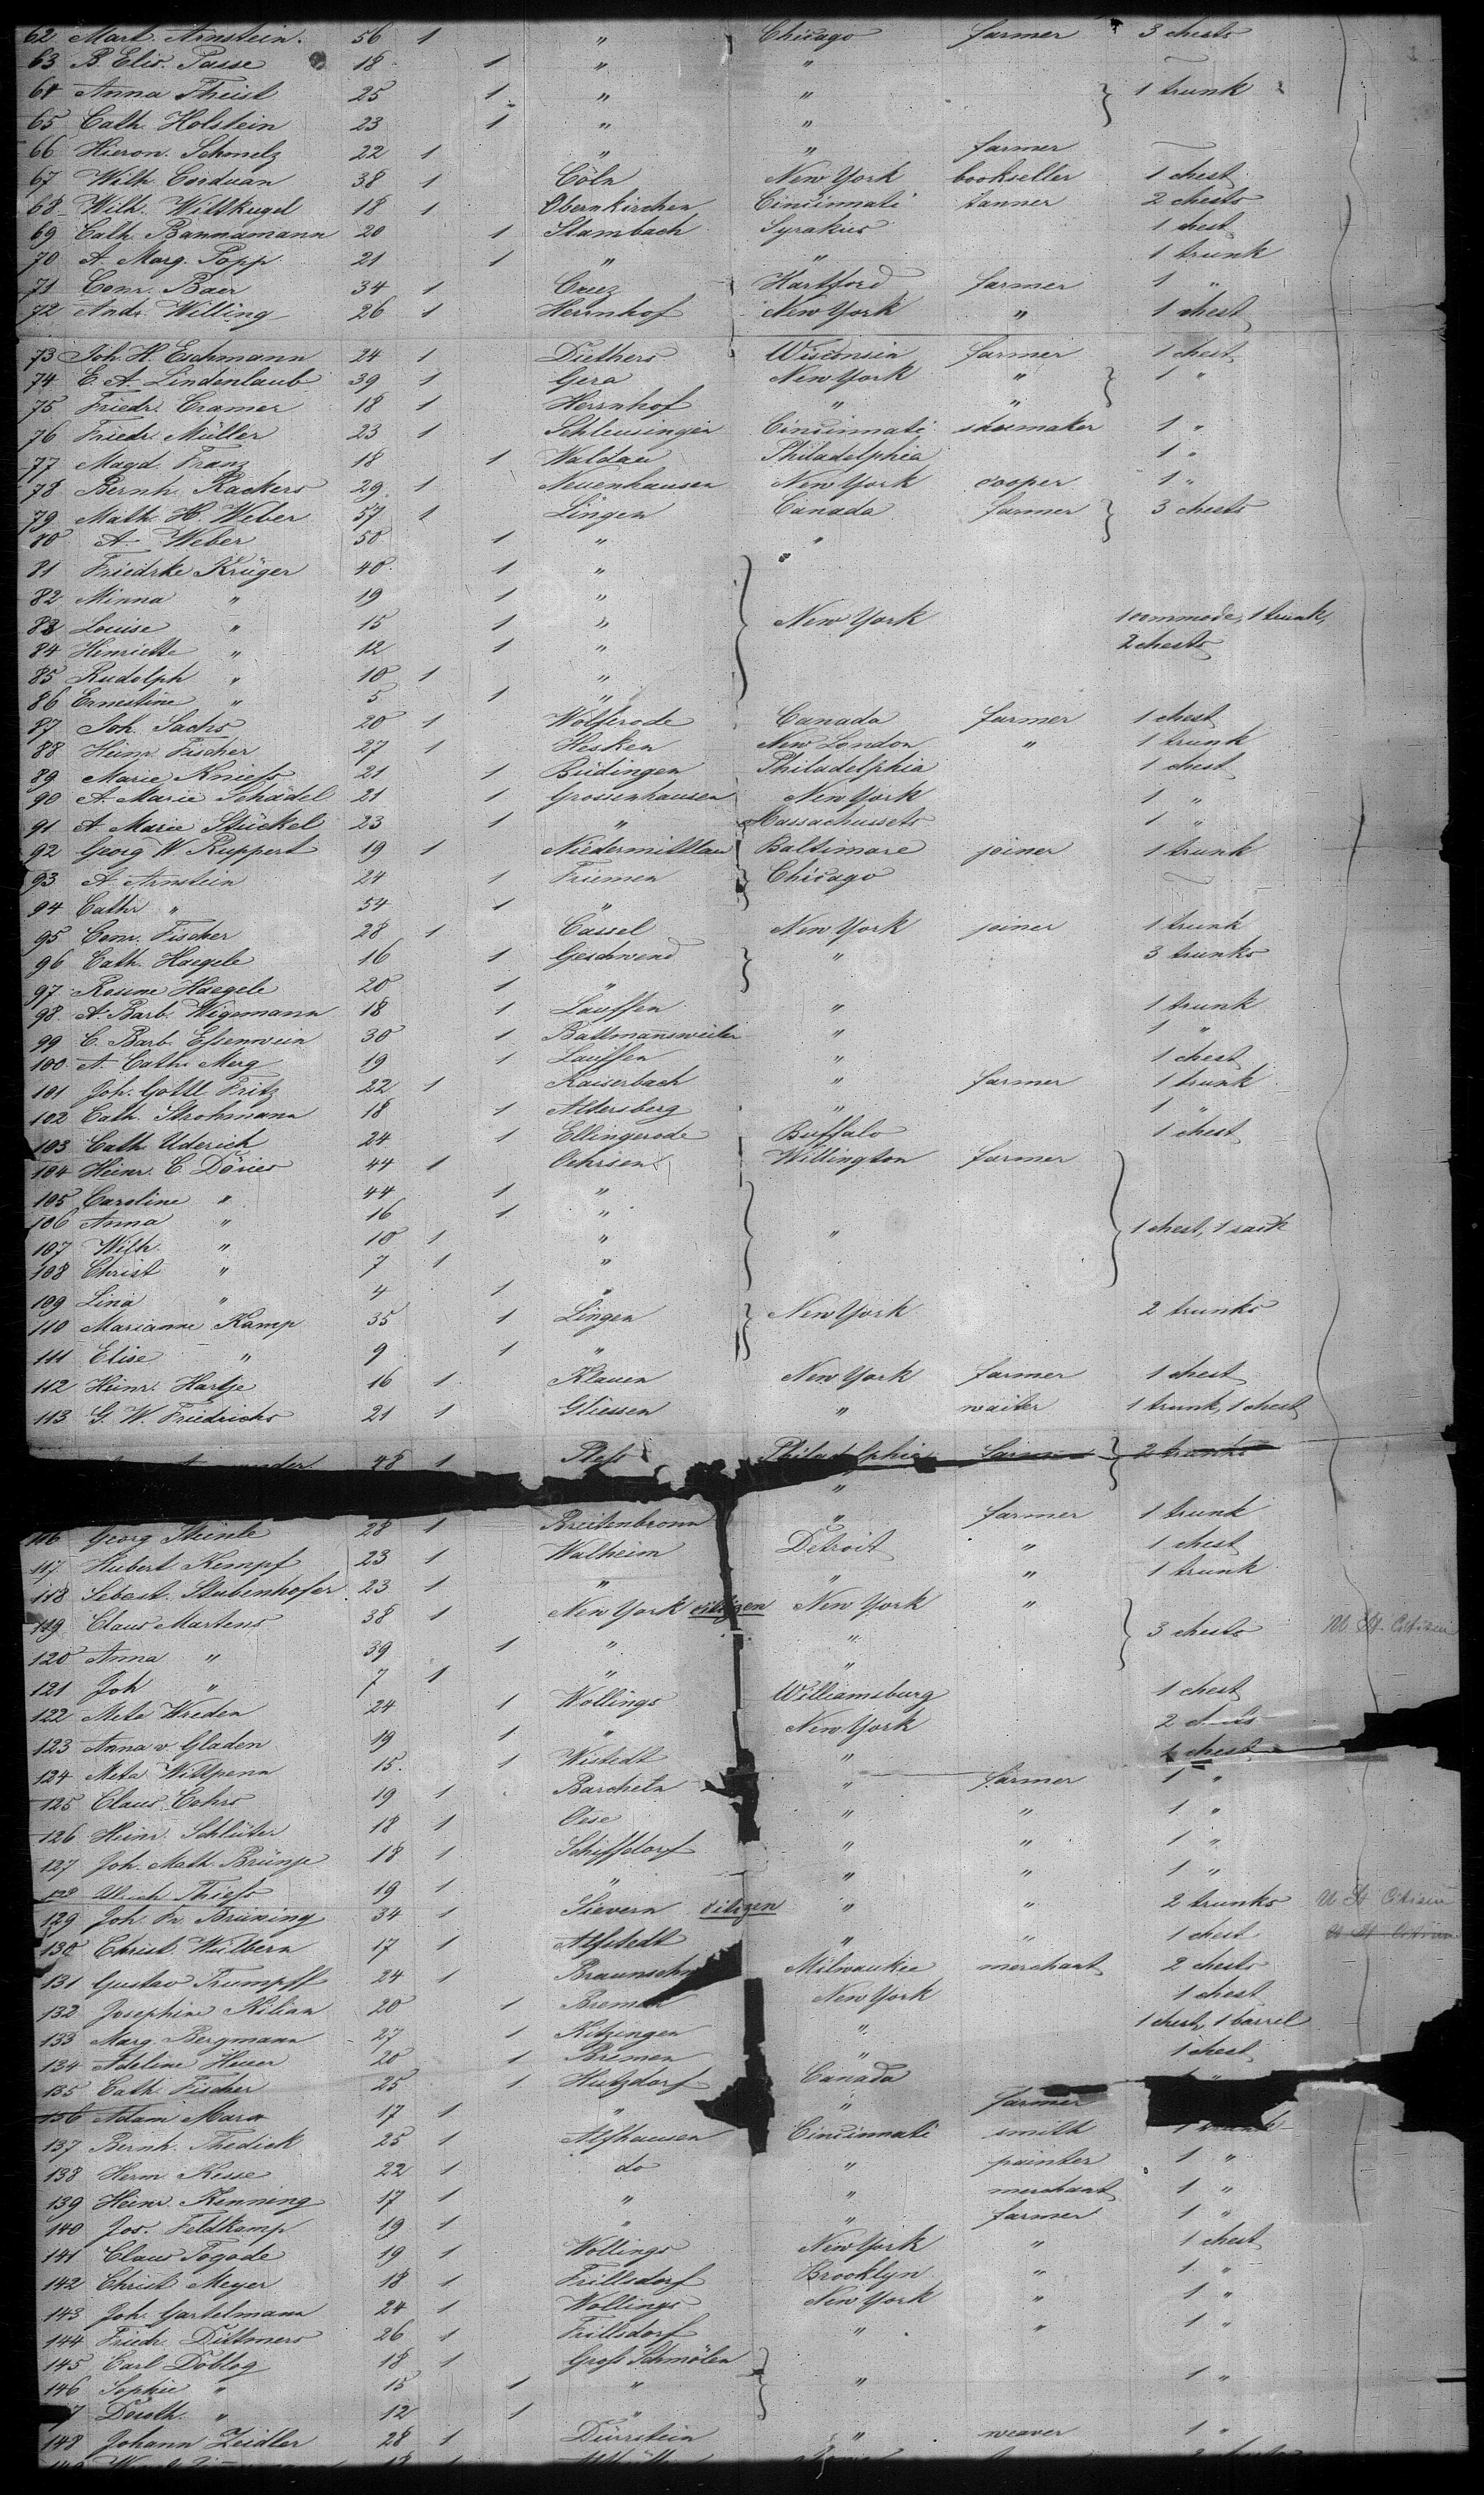 62 Mart. Arnstein. 56 1 " Chicago farmer 3 chests
63 B. Elis. Passe 18 1 " "
64 Anna Theist 25 1 " " 1 trunk
65 Cath. Holstein 23 1 " "
66 Hieron. Schmelz 22 1 " " farmer
67 Wilh. Corduan 38 1 Cöln New York bookseller 1 chest
68 Wilh. Wittkugel 18 1 Obernkirchen Cincinnati tanner 2 chests
69 Cath. Bannamann 20 1 Stambach Syrakus 1 chest
70 A. Marg. Popp 21 1 " " 1 trunk
71 Conr. Baer 34 1 Hartford farmer 1 "
72 Andr. Willing 26 1 Herrnhof New York " 1 chest
73 Joh. H. Eschmann 24 1 Diethers Wisconsin farmer 1 chest
74 E. A. Lindenlaub 39 1 Gera New York " 1 "
75 Friedr. Cramer 18 1 Herrnhof " "
76 Friedr. Müller 23 1 Schleusingen Cincinnati shoemaker 1 "
77 Magd. Franz 18 1 Waldau Philadelphia 1 "
78 Bernh. Rackers 29 1 Neuenhausen New York cooper 1 "
79 Math. H. Weber 57 1 Lingen Canada farmer 3 chests
80 A. Weber 50 1 " "
81 Friedrke Krüger 40 1 " "
82 Minna " 19 1 "
83 Louise " 15 1 " New York 1 commode, 1 trunk,
84 Henriette " 12 1 " 2 chests
85 Rudolph " 10 1 "
86 Ernestine " 5 1 "
87 Joh. Sachs 20 1 Wolferode Canada farmer 1 chest
88 Heinr. Fischer 27 1 Hesken New London " 1 trunk
89 Marie Knieß 21 1 Büdingen Philadelphia 1 chest
90 A. Marie Schädel 21 1 Grossenhausen New York 1 "
91 A. Marie Stückel 23 1 " Massachussets 1 "
92 Georg W. Ruppert 19 1 Niedermittlau Baltimore joiner 1 trunk
93 A. Arnstein 24 1 Friemen Chicago
94 Cathr. " 54 1 "
95 Conr. Fischer 28 1 Cassel New York joiner 1 trunk
96 Cath. Haegele 16 1 Geschwend " 3 trunks
97 Rosine Haegele 20 1 "
98 A. Barb. Wigemann 18 1 Lauffen " 1 trunk
99 C. Barb. Eßenwein 30 1 Battmannsweiler " 1 "
100 A. Cath. Merg 19 1 Lauffen " 1 chest
101 Joh. Gottl. Fritz 22 1 Kaiserbach " farmer 1 trunk
102 Cath. Strohmann 18 1 Altersberg " 1 "
103 Cath. Uderich 24 1 Ellingerode Buffalo 1 chest
104 Heinr. C. Döries 44 1 Oehrsen Willington farmer
105 Caroline " 44 1 "
106 Anna " 16 1 "
107 Wilh. " 10 1 " " 1 chest, 1 sack
108 Christ " 7 1 "
109 Lina " 4 1 "
110 Marianne Kamp 35 1 Lingen New York 2 trunks
111 Elise " 9 1 "
112 Heinr. Hartje 16 1 Klauen New York farmer 1 chest
113 G. W. Friedrichs 21 1 Gliessen " waiter 1 trunk, 1 chest
48 1 Pleß Philadelphia farmer 2 trunks
"
116 Georg Steinle 28 1 Breitenbronn " farmer 1 trunk
117 Hubert Kempf 23 1 Walheim Detroit " 1 chest
118 Sebast. Stubenhofer 23 1 " " " 1 trunk
119 Claus Martens 38 1 New York citizen New York "
120 Anna " 39 1 " " 3 chests U. St. Citizen
121 Joh " 7 1 " "
122 Meta Wreden 24 1 Wollings Williamsburg 1 chest
123 Anna v Gladen 19 1 " New York 2 chests
124 Meta Wittpenn 15 1 Wistedt " 1 chest
125 Claus Cohrs 19 1 Barcheln " farmer 1 "
126 Heinr. Schlüter 18 1 Oese " " 1 "
127 Joh. Math. Brünje 18 1 Schiffdorf " " 1 "
128 Ulrich Thieß 19 1 " " " 1 "
129 Joh. Fr. Brüning 34 1 Sievern citizen " " 2 trunks U St Citizen
130 Christ. Wülbern 17 1 Alfstedt " " 1 chest U St Citizen
131 Gustav Trumpff 24 1 Milwaukie merchant 2 chests
132 Josephine Kilian 20 1 Bremen New York 1 chest
133 Marg. Bergmann 27 1 Kitzingen " 1 chest, 1 barrel
134 Adeline Heuer 20 1 Bremen " 1 chest
135 Cath. Fischer 25 1 Hutzdorf Canada 1 "
136 Adam Marx 17 1 " " farmer
137 Bernh. Thedieck 25 1 Alfhausen Cincinnati smith 1 trunk
138 Herm. Kesse 22 1 do " painter 1 "
139 Heinr. Kenning 17 1 " " merchant 1 "
140 Jos. Feldkamp 19 1 " " farmer 1 "
141 Claus Togode 19 1 Wollings New York " 1 chest
142 Christ Meyer 18 1 Frillsdorf Brooklyn " 1 "
143 Joh. Gartelmann 24 1 Wollings New York " 1 "
144 Friedr. Dittmers 26 1 Frillsdorf " " 1 "
145 Carl Döbtog 18 1 Groß Schmölen
146 Sophie " 15 1 " " 1 "
7 Doroth. " 12 1 "
148 Johann Zeidler 28 1 Dürrstein " weaver 1 "